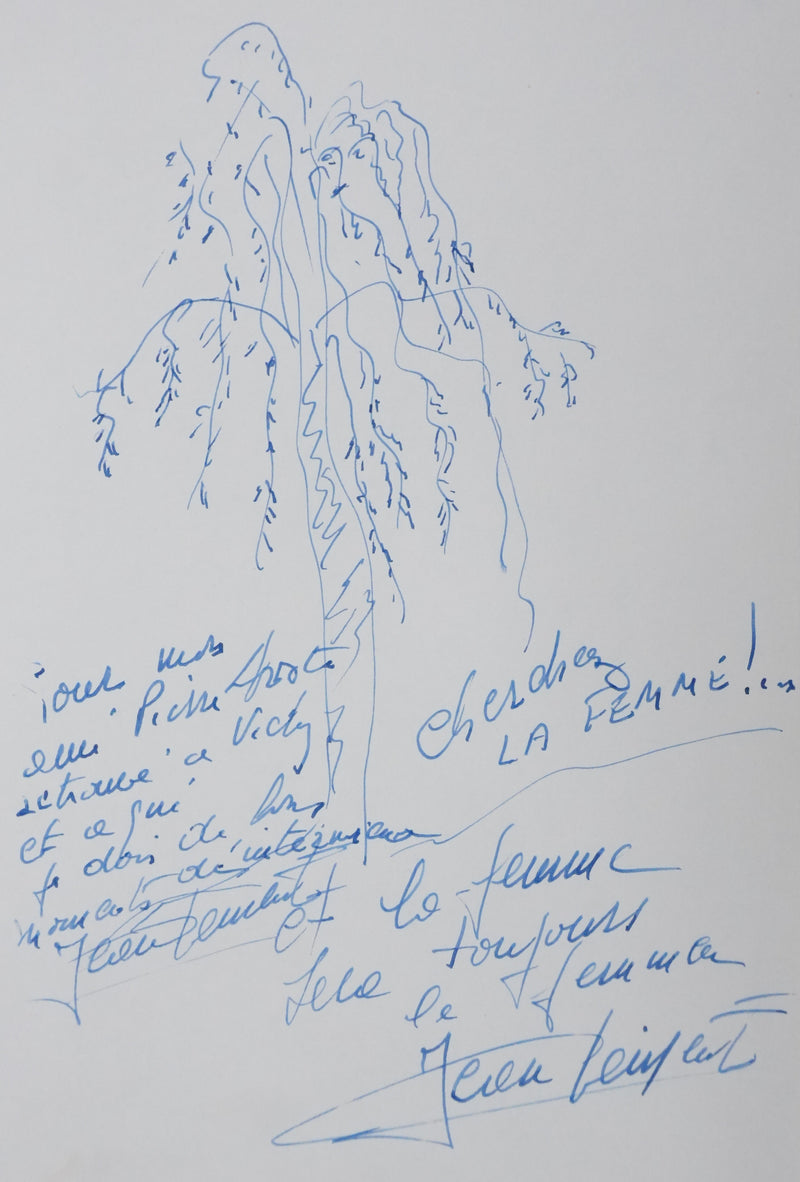 Pour mon
ami Pierre
retrouvé à Vichy
et a qui
je dois de bons
moments
Jean
Cherchez
LA FEMME!...
et la femme
sera toujours
la femme
Jean